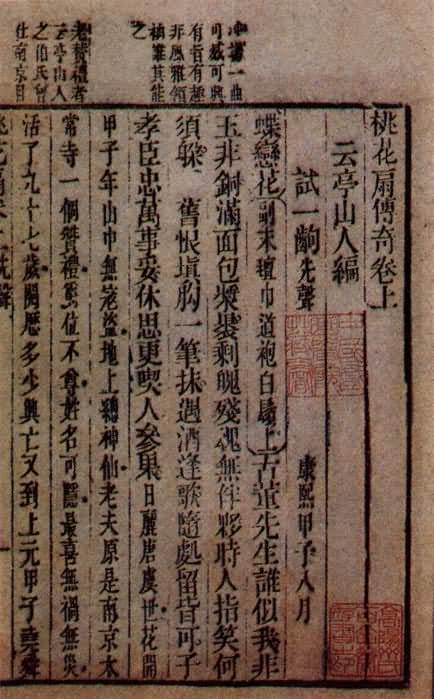 冲場一曲
可感可興
有旨有趣
非風雅領
袖誰其能
之
老贊禮者
云亭山人
之伯氏曾
仕南京目
桃花扇傳奇卷上
云亭山人編
試一齣先聲 康熙甲子八月
蝶戀花副末氊巾道袍白鬚上古董先生誰似我非
玉非銅滿面包漿裹剩魄殘魂無伴夥時人指笑何
須躲 舊恨塡胸一筆抹遇酒逢歌隨處留皆可子
孝臣忠萬事妥休思更喫人參菓日麗唐虞世花開
甲子年山中無寇盜地上總神仙老夫原是南京太
常寺一個贊禮爵位不尊姓名可隱最喜無禍無災
活了九十七歲閱歷多少興亡又到上元甲子堯舜